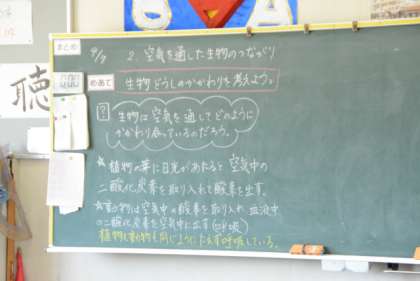 まとめ
9/7 2. 空気を通した生物のつながり
0:00
めあて 生物どうしのかかわりを考えよう。
? 生物は空気を通してどのように
かかわり合っているのだろう。
☆植物の葉に日光があたると空気中の
二酸化炭素を取り入れて酸素を出す。
☆動物は空気中の酸素を取り入れ、血液中
の二酸化炭素を空気中に出す(呼吸)
植物も動物も同じようにたえず呼吸している。
聴